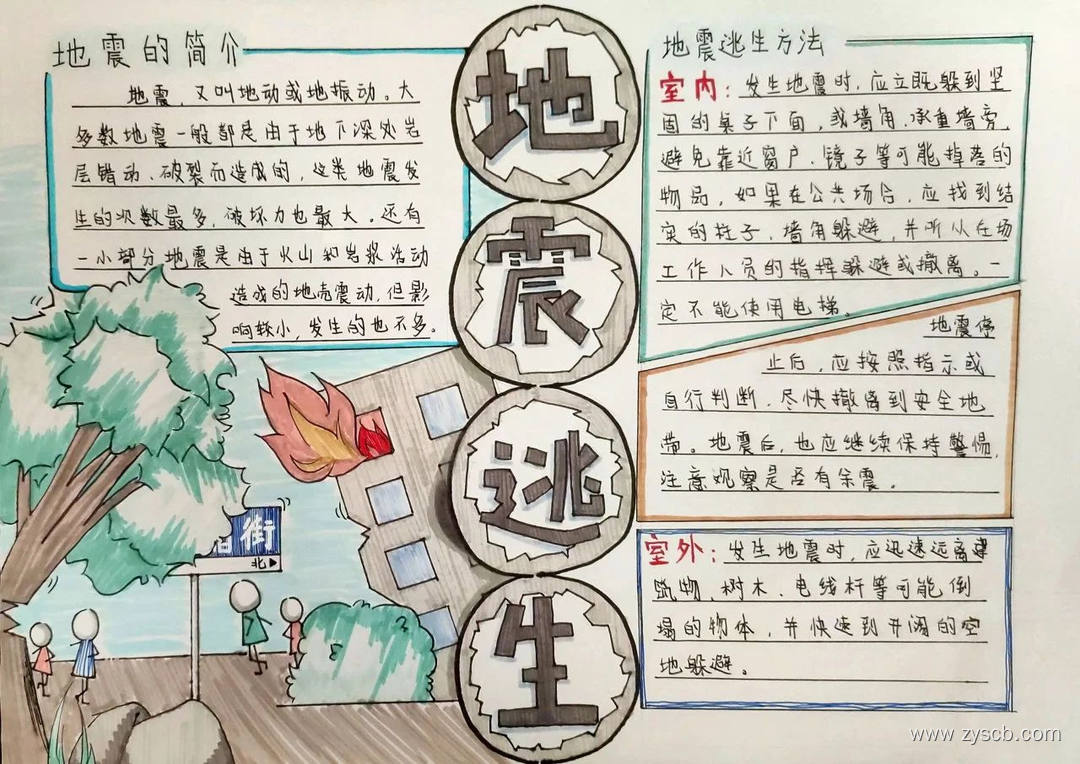 地震的简介
地震，又叫地动或地振动。大
多数地震一般都是由于地下深处岩
层错动、破裂而造成的，这类地震发
生的次数最多，破坏力也最大，还有
一小部分地震是由于火山和岩浆活动
造成的地壳震动，但影
响较小，发生的也不多。
地
震
逃
生
街
北
地震逃生方法
室内：发生地震时，应立既躲到坚
固的桌子下面，或墙角、承重墙旁，
避免靠近窗户、镜子等可能掉落的
物品，如果在公共场合，应找到结
实的柱子、墙角躲避，并听从在场
工作人员的指挥躲避或撤离。一
定不能使用电梯。
地震停
止后，应按照指示或
自行判断，尽快撤离到安全地
带。地震后，也应继续保持警惕，
注意观察是否有余震。
室外：发生地震时，应迅速远离建
筑物、树木、电线杆等可能倒
塌的物体，并快速到开阔的空
地躲避。
www.zyscb.com